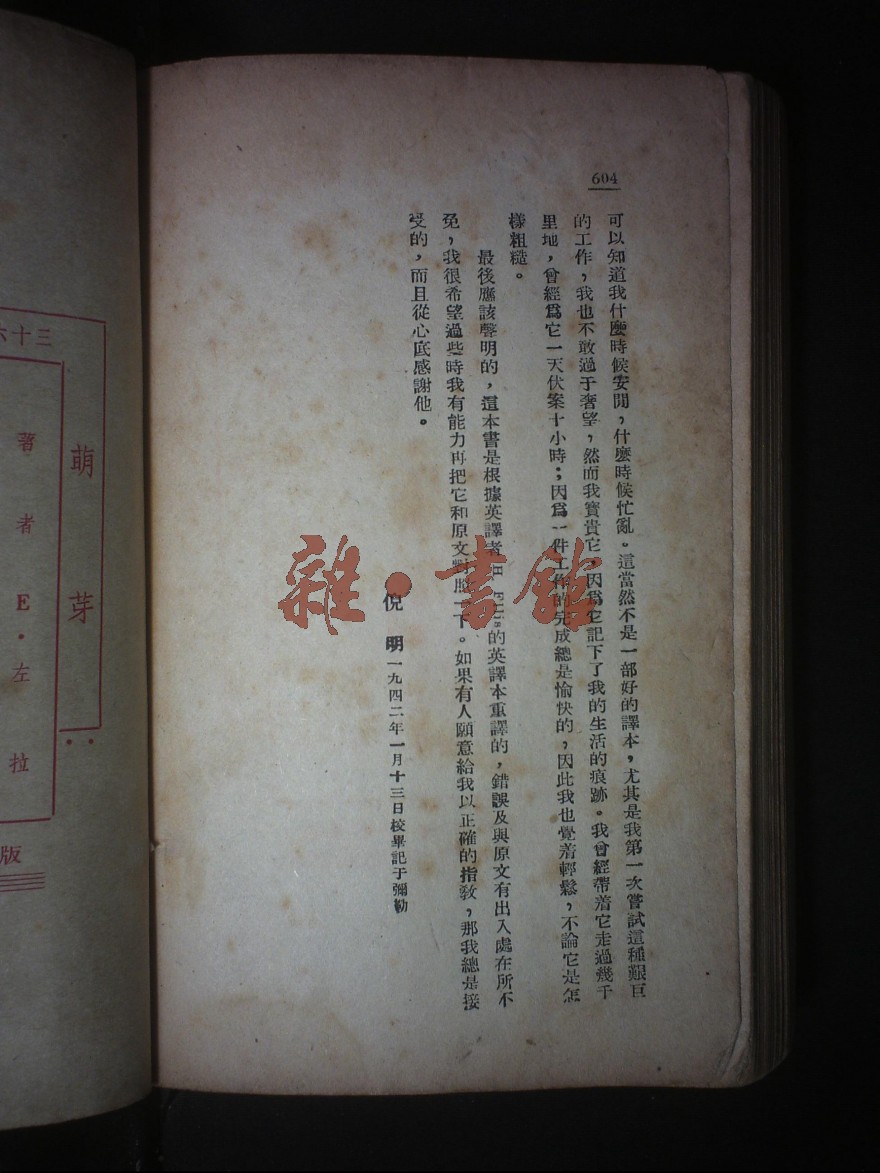 604
可以知道我什麼時候安閒，什麼時候忙亂。這當然不是一部好的譯本，尤其是我第一次嘗試這種艱巨
的工作，我也不敢過于奢望，然而我寶貴它，因爲它記下了我的生活的痕跡。我曾經帶着它走過幾千
里地，曾經爲它一天伏案十小時；因爲一件工作的完成總是愉快的，因此我也覺着輕鬆，不論它是怎
樣粗糙。
最後應該聲明的，這本書是根據英譯者H. Ellis的英譯本重譯的，錯誤及與原文有出入處在所不
免，我很希望過些時我有能力再把它和原文對照一下。如果有人願意給我以正確的指教，那我總是接
受的，而且從心底感謝他。
倪明一九四二年一月十三日校畢記于彌勒
雜·書館
三十六
萌芽
著者E·左拉
版